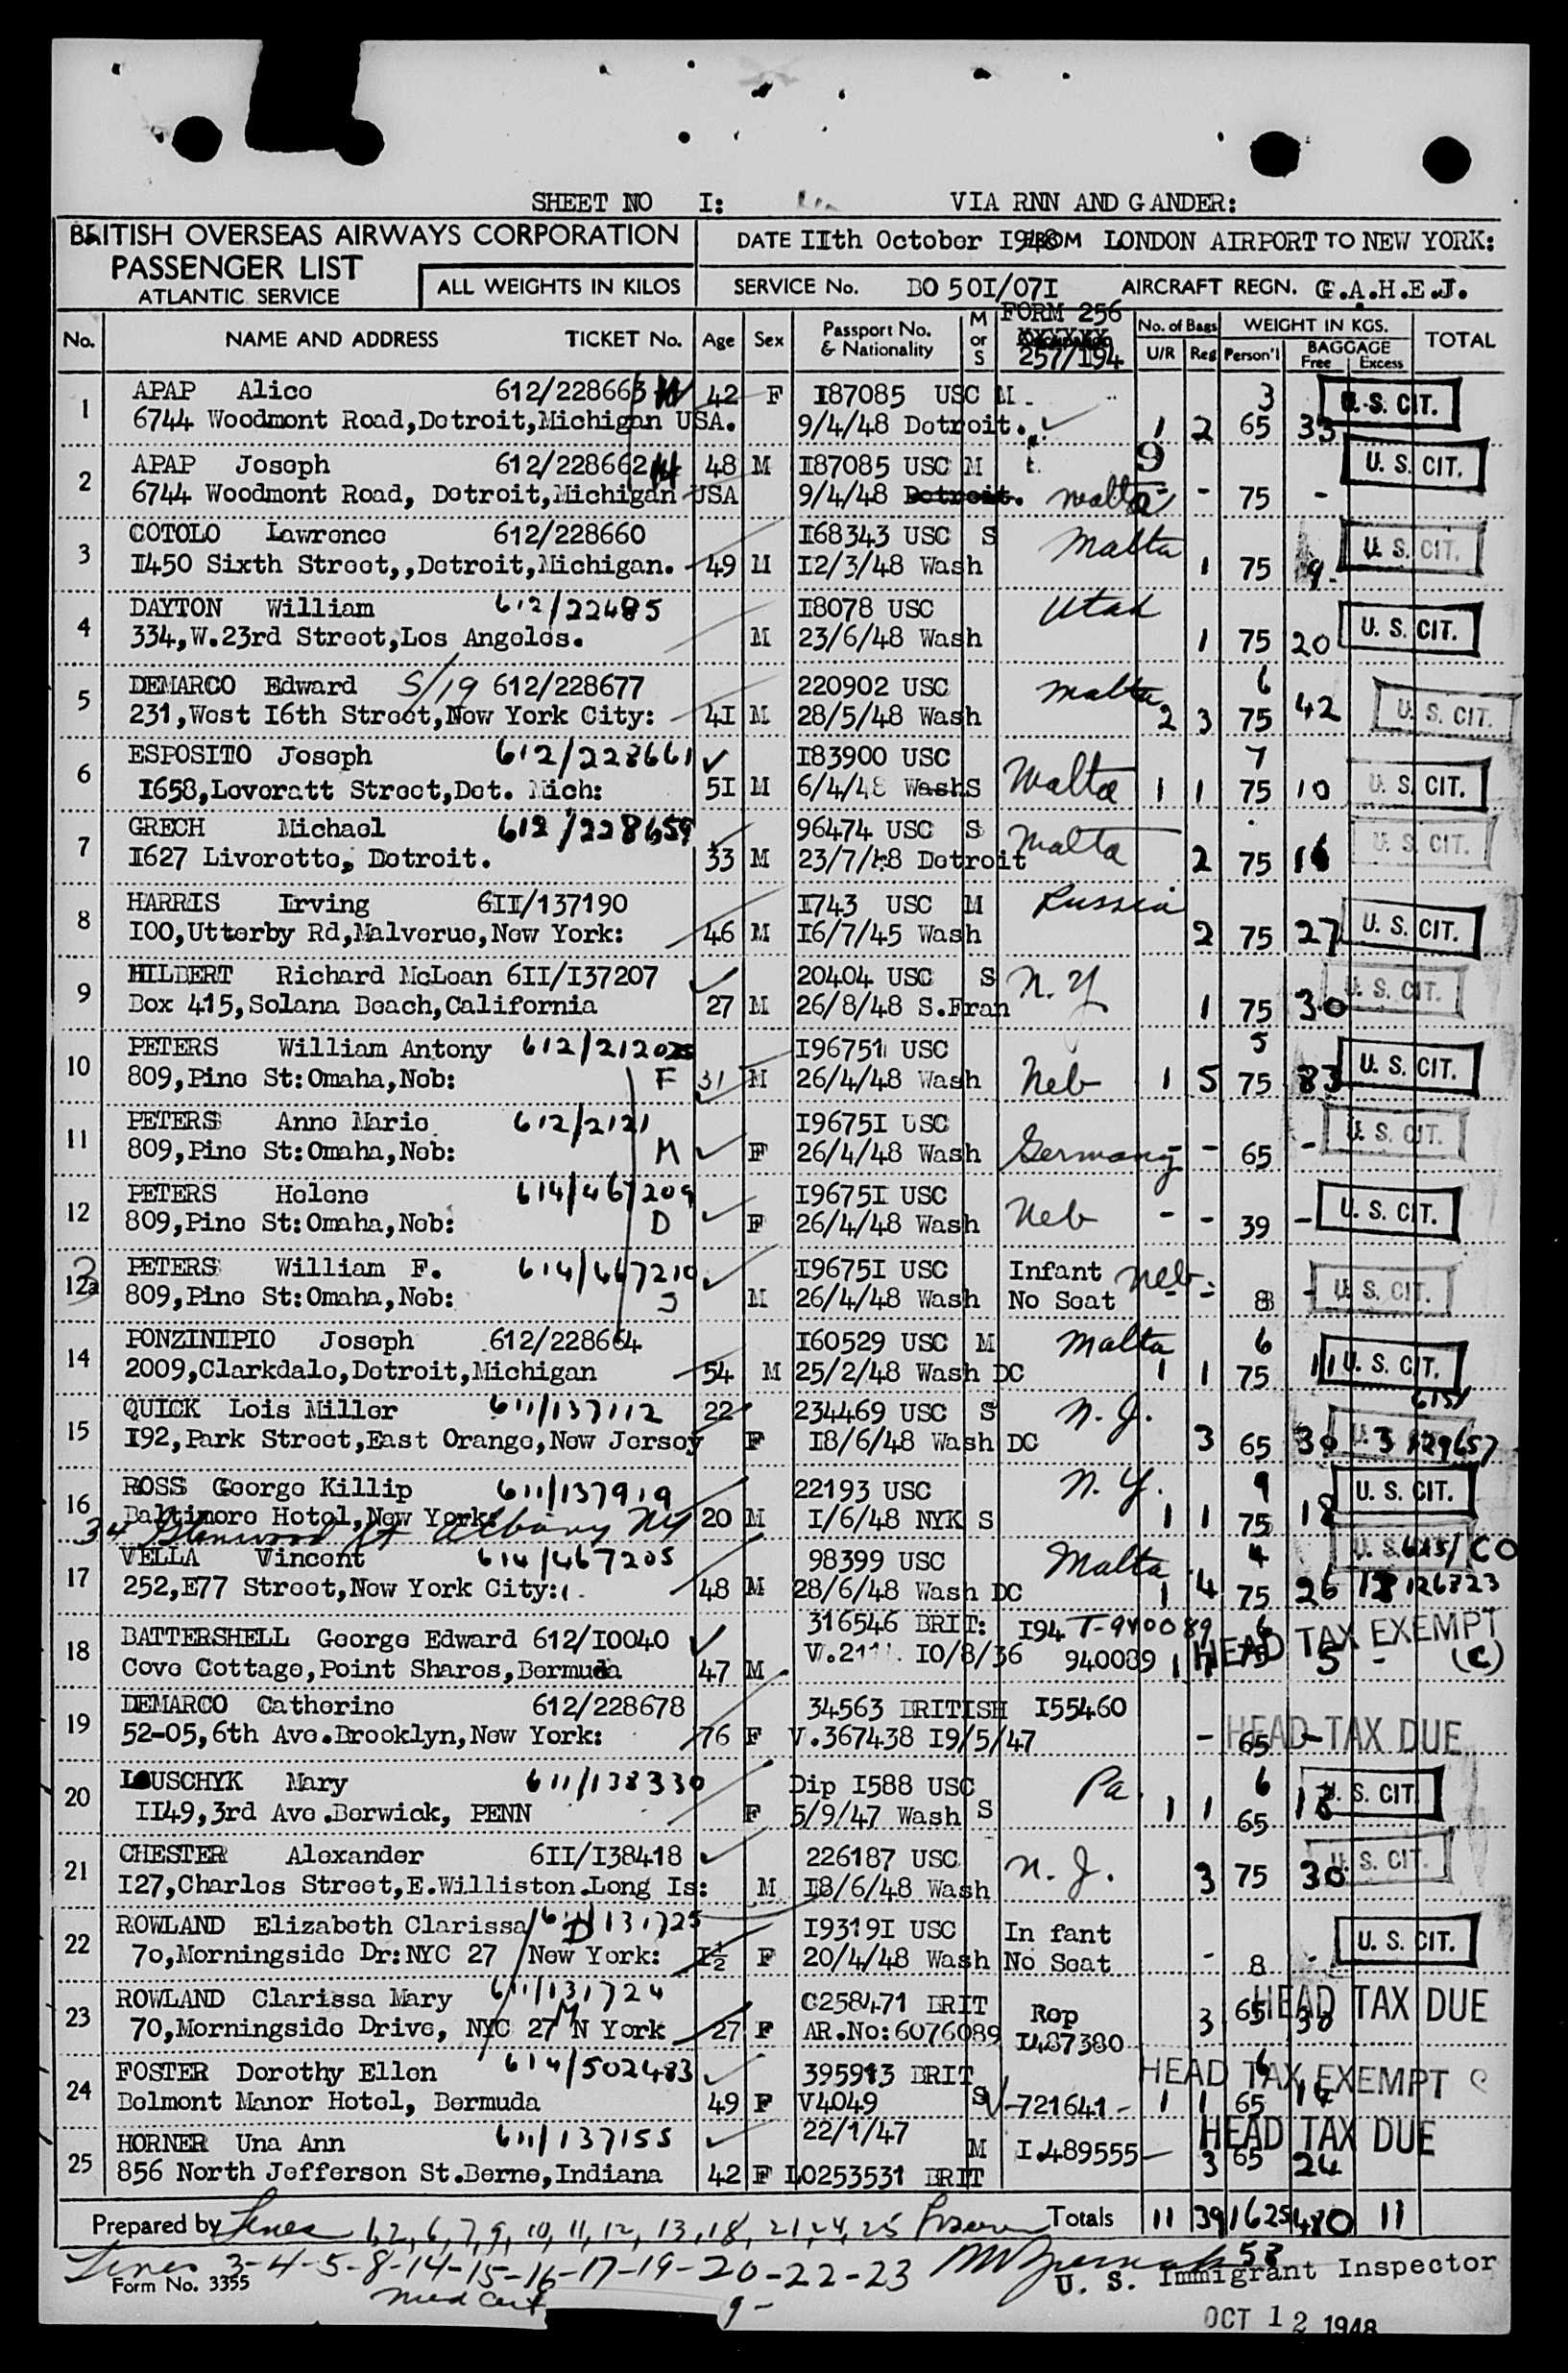 SHEET NO I: VIA RNN AND GANDER:
BRITISH OVERSEAS AIRWAYS CORPORATION
PASSENGER LIST
ATLANTIC SERVICE
ALL WEIGHTS IN KILOS
DATE IIth October 1948 FROM LONDON AIRPORT TO NEW YORK:
SERVICE No. BO 50I/07I AIRCRAFT REGN. G.A.H.E.J.
No. NAME AND ADDRESS TICKET No. Age Sex Passport No. & Nationality M or S FORM 256 257/194 No. of Bags U/R Reg WEIGHT IN KGS. Person'l BAGGAGE Free Excess TOTAL
1 APAP Alice 612/228663 W 42 F I87085 USC M 3 U.S. CIT.
6744 Woodmont Road,Detroit,Michigan USA. 9/4/48 Detroit. 1 2 65 33
2 APAP Joseph 612/228662 H 48 M I87085 USC M 9 U. S. CIT.
6744 Woodmont Road, Detroit,Michigan USA 9/4/48 Detroit. Malta - 75 -
3 COTOLO Lawrence 612/228660 I68343 USC S Malta U. S. CIT.
II450 Sixth Street,,Detroit,Michigan. 49 M I2/3/48 Wash 1 75 9-
4 DAYTON William 612/22485 I8078 USC Utah U. S. CIT.
334,W.23rd Street,Los Angeles. M 23/6/48 Wash 1 75 20
5 DEMARCO Edward S/19 612/228677 220902 USC Malta 6 U. S. CIT.
231,West I6th Street,New York City: 4I M 28/5/48 Wash 2 3 75 42
6 ESPOSITO Joseph 612/228661 I83900 USC 7
I658,Leveratt Street,Det. Mich: 5I M 6/4/48 Wash S Malta 1 1 75 10 U. S. CIT.
7 GRECH Michael 612/228659 96474 USC S Malta U. S. CIT.
II627 Liverette, Detroit. 33 M 23/7/48 Detroit 2 75 16
8 HARRIS Irving 6II/137190 II743 USC M Russia
I00,Utterby Rd,Malverue,New York: 46 M I6/7/45 Wash 2 75 27 U. S. CIT.
9 HILBERT Richard McLean 6II/I37207 20404 USC S N.Y U. S. CIT.
Box 415,Solana Beach,California 27 M 26/8/48 S.Fran 1 75 30
10 PETERS William Antony I96751 USC 5
809,Pine St:Omaha,Neb: F 31 M 26/4/48 Wash Neb 1 5 75 83 U. S. CIT.
11 PETERS Anne Marie 612/2121 I9675I USC U. S. CIT.
809,Pine St:Omaha,Neb: M F 26/4/48 Wash Germany - - 65 -
12 PETERS Helene 614/467209 I9675I USC U. S. CIT.
809,Pine St:Omaha,Neb: D F 26/4/48 Wash Neb - - 39 -
12a 3 PETERS William F. 614/467210 I9675I USC Infant Neb. U. S. CIT.
809,Pine St:Omaha,Neb: S M 26/4/48 Wash No Seat - 8 -
14 PONZINIPIO Joseph 612/228664 I60529 USC M Malta 6
2009,Clarkdale,Detroit,Michigan 54 M 25/2/48 Wash DC 1 1 75 11 U. S. CIT.
15 QUICK Lois Miller 611/137112 22 234469 USC S N.J. 6151
I92,Park Street,East Orange,New Jersey F I8/6/48 Wash DC 3 65 30 3 129657
16 ROSS George Killip 611/137919 22193 USC N.Y. 9 U. S. CIT.
Baltimore Hotel,New York: 20 M I/6/48 NYK S 1 1 75 18
34 Glenwood St Albany NY
17 VELLA Vincent 614/467205 98399 USC Malta 4 615/CO
252,E77 Street,New York City: 48 M 28/6/48 Wash DC 1 4 75 26 12 126723
18 BATTERSHELL George Edward 612/I0040 316546 BRIT: I94 T-940089 6 HEAD TAX EXEMPT
Cove Cottage,Point Shares,Bermuda 47 M I0/8/36 940089 1 1 75 5 - (C)
19 DEMARCO Catherine 612/228678 34563 BRITISH I55460 HEAD TAX DUE
52-05,6th Ave.Brooklyn,New York: 76 F V.367438 I9/5/47 - 65 -
20 LOUSCHYK Mary 611/138330 Dip I588 USC Pa. 6 U. S. CIT.
II49,3rd Ave.Berwick, PENN F 5/9/47 Wash S 1 1 65 18
21 CHESTER Alexander 6II/I38418 226187 USC N.J. U. S. CIT.
I27,Charles Street,E.Williston.Long Is: M I8/6/48 Wash 3 75 30
22 ROWLAND Elizabeth Clarissa 611/131725 D I9319I USC In fant U. S. CIT.
70,Morningside Dr:NYC 27 New York: I½ F 20/4/48 Wash No Seat - 8 -
23 ROWLAND Clarissa Mary 611/131724 C258471 BRIT Rep HEAD TAX DUE
70,Morningside Drive, NYC 27 M N York 27 F AR.No:6076089 I487380 3 65 38
24 FOSTER Dorothy Ellen 614/502483 395913 BRIT 6 HEAD TAX EXEMPT C
Belmont Manor Hotel, Bermuda 49 F V4049 S V-721641- 1 1 65 14
22/1/47
25 HORNER Una Ann 611/137155 M I.489555- HEAD TAX DUE
856 North Jefferson St.Berne,Indiana 42 F L0253531 BRIT 3 65 24
Prepared by Lines 1,2,6,7,9,10,11,12,13,18,21,24,25 Totals 11 39 1625 480 11
Lines 3-4-5-8-14-15-16-17-19-20-22-23 58
U. S. Immigrant Inspector
Form No. 3355
Med Cert 9-
OCT 12 1948